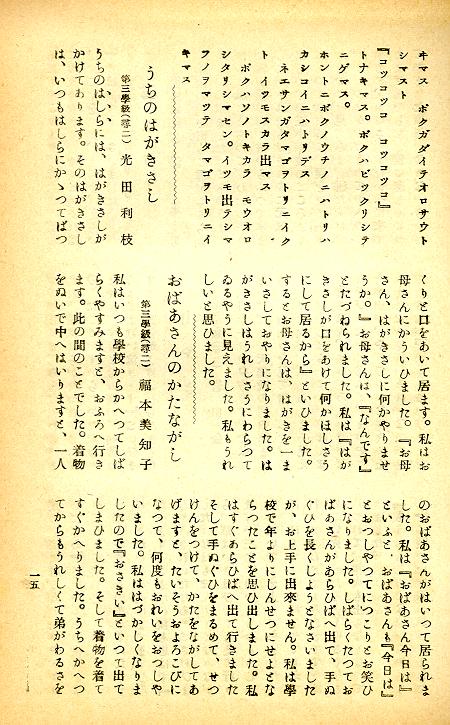 ヰマス　ボクガダイテオロサウト
シマスト
『コツコツコ　コツコツコ』
トナキマス。ボクハビツクリシテ
ニゲマス。
ホントニボクノウチノニハトリハ
カシコイニハトリデス
ネエサンガタマゴヲトリニイク
ト　イツモスカラ出マス
ボクハソノトキカラ　モウオロ
シタリシマセン。イツモ出テシマ
フノヲマツテ　タマゴヲトリニイ
キマス
うちのはがきさし
第三學級(尋二)　光田利枝
うちのはしらには、はがきさしが
かけてあります。そのはがきさし
は、いつもはしらにかゝつてぱつ
くりと口をあいて居ます。私はお
母さんにかういひました。『お母
さん、はがきさしに何かやりませ
うか。』お母さんは、『なんです』
とたづねられました。私は『はが
きさしが口をあけて何かほしさう
にして居るから』といひました。
するとお母さんは、はがきを一ま
いさしておやりになりました。は
がきさしはうれしさうにわらつて
ゐるやうに見えました。私もうれ
しいと思ひました。
おばあさんのかたながし
第三學級(尋二)　福本美知子
私はいつも學校からかへつてしば
らくやすみますと、おふろへ行き
ます。此の間のことでした。着物
をぬいで中へはいりますと、一人
のおばあさんがはいつて居られま
した。私は『おばあさん今日は』
といふと、おばあさんも『今日は』
とおつしやつてにつこりとお笑ひ
になりました。しばらくたつてお
ばあさんがあらひばへ出て、手ぬ
ぐひを長くしようとなさいました
が、お上手に出來ません。私は學
校で年よりにしんせつにせよとな
らつたことを思ひ出しました。私
はすぐあらひばへ出て行きました
そして手ぬぐひをまるめて、せつ
けんをつけて、かたをながしてあ
げますと、たいそうおよろこびに
なつて、何度もおれいをおつしや
いました。私ははづかしくなりま
したので『おさきい』といつて出て
しまひました。そして着物を着て
すぐかへりました。うちへかへつ
てからもうれしくて弟がわるさを
一五